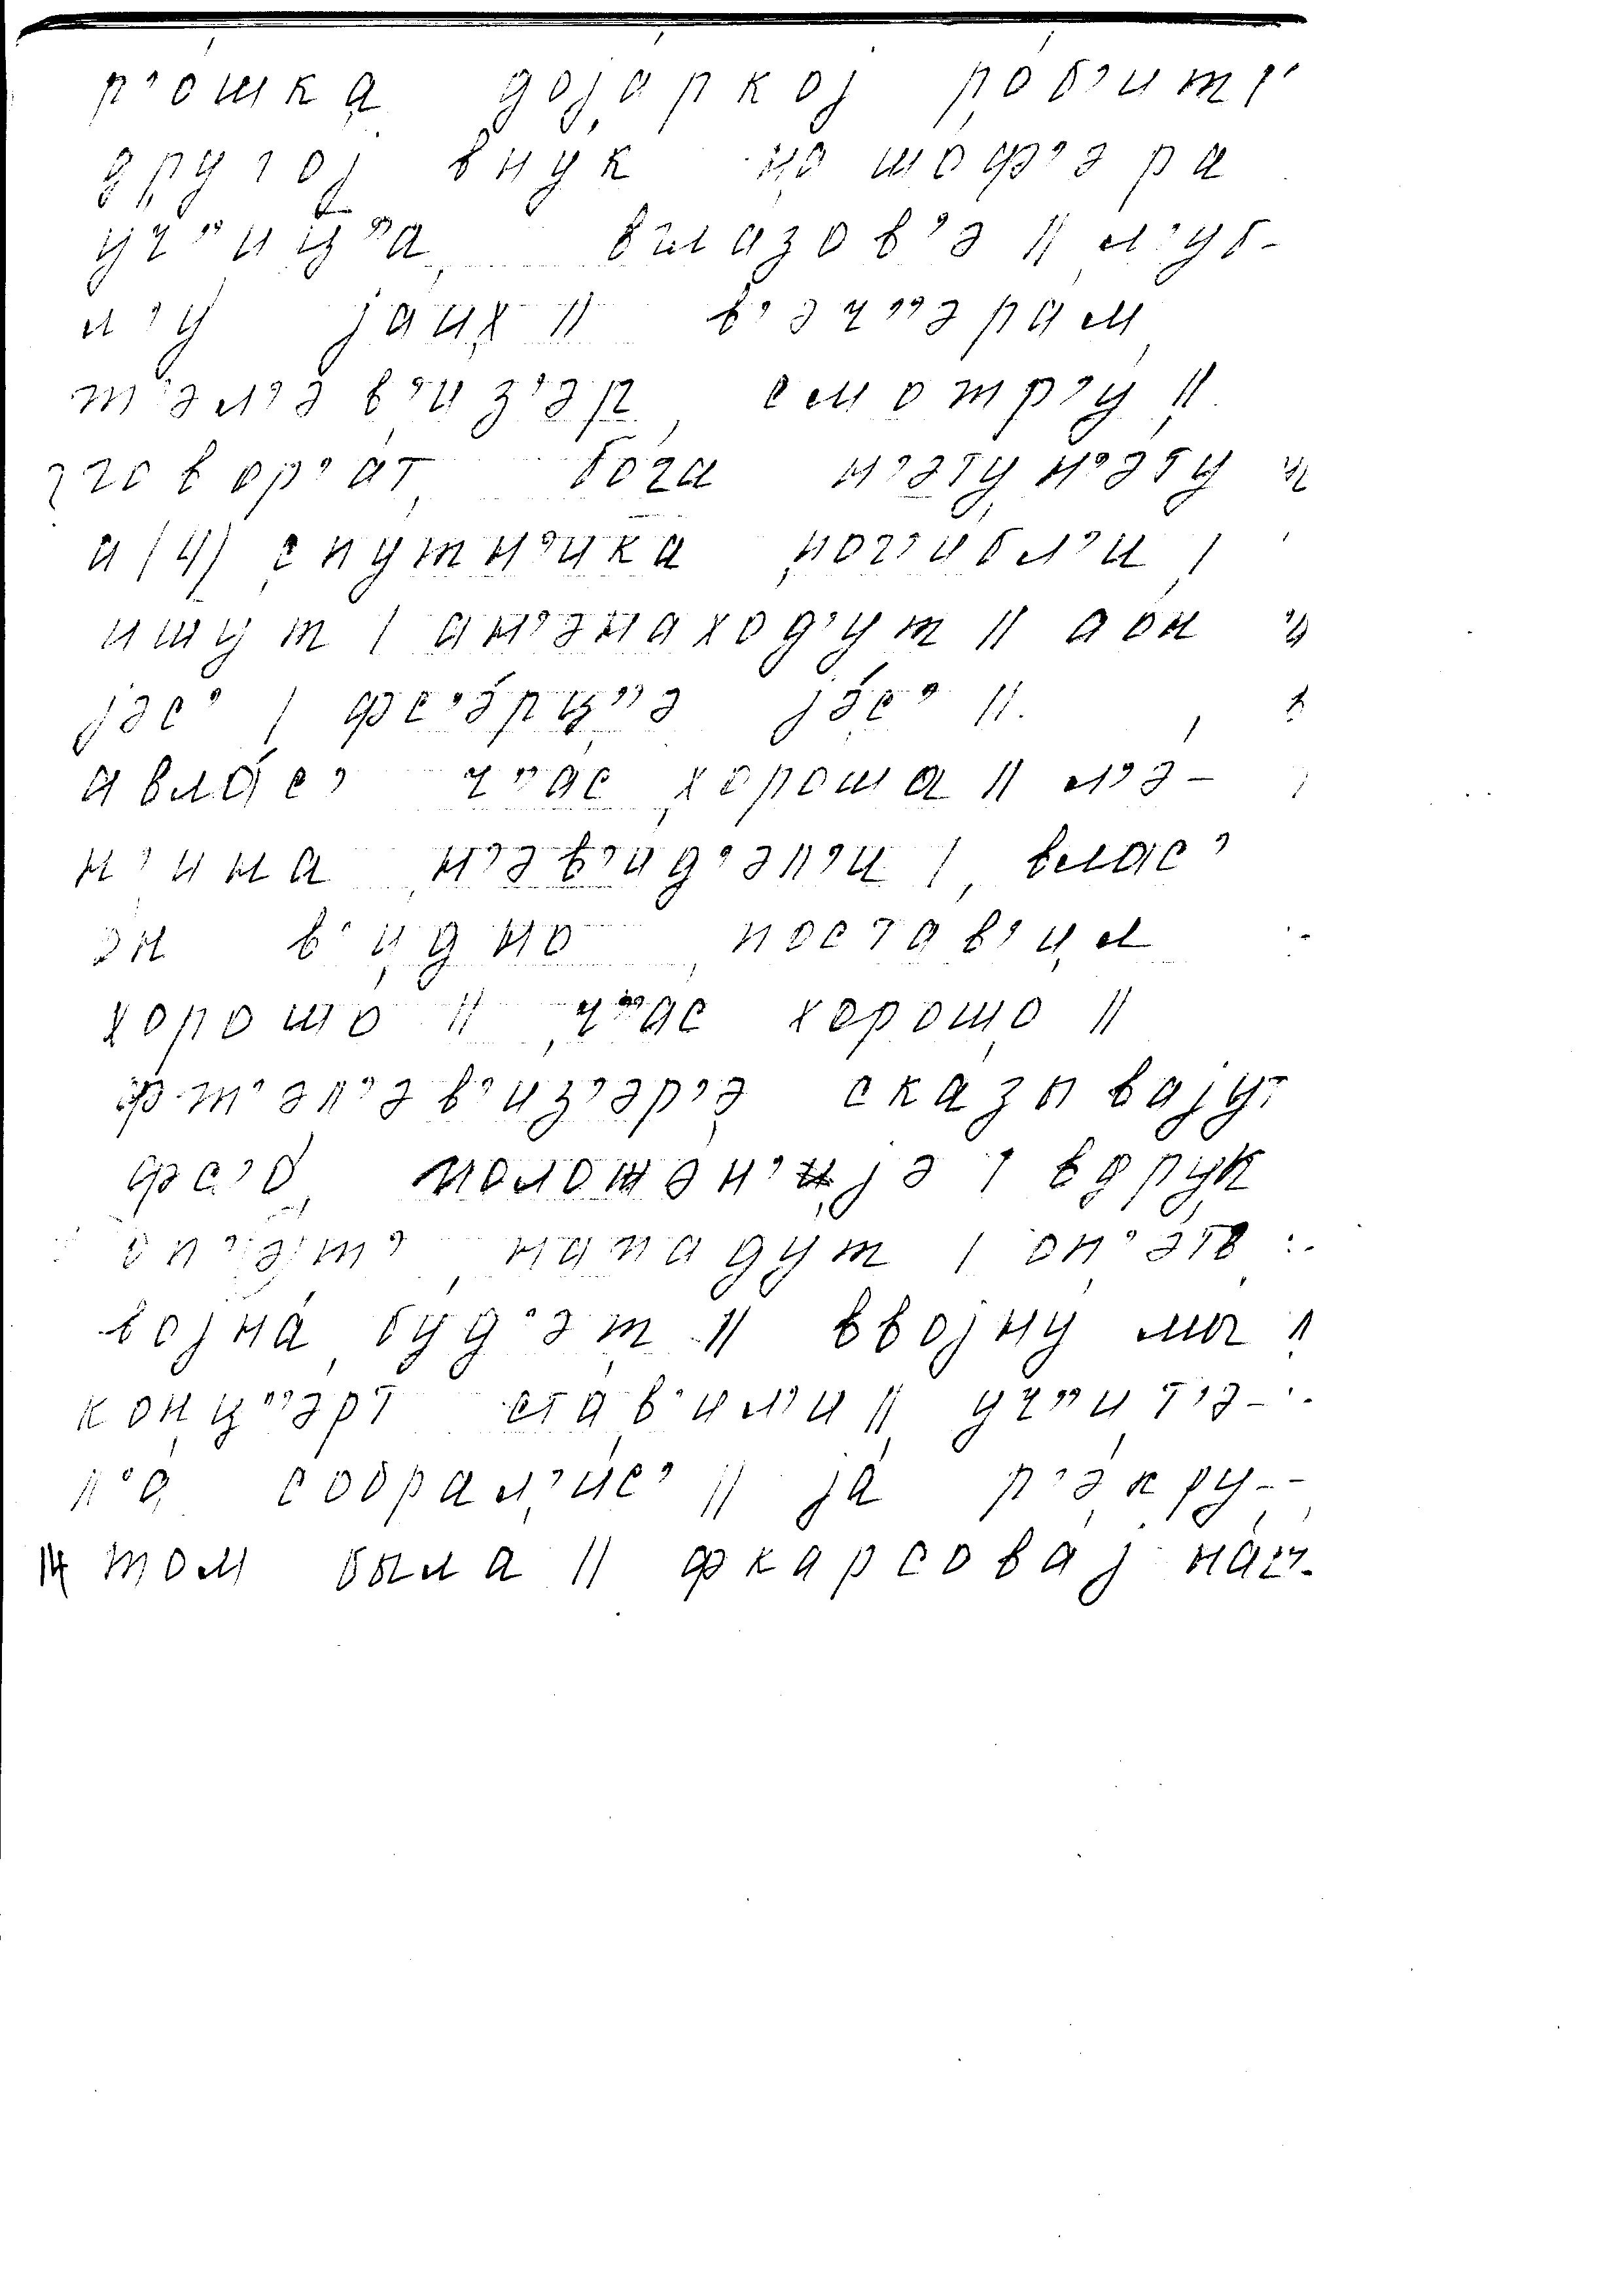 р’о́шка доја́ркој ро́б’ит’
друго́ј внук на шоф’э́ра
уч’’и́ц’’а вглазов’э || л’уб-
л’у́ јаи́х || в’эч’’эра́м
т’эл’эв’и́з’эр смотр’у́ ||
говор’а́т бо́га н’э́ту н’э́ту
а (4) спу́тн’ика пог’и́бл’и |
ишут | ан’энахо́д’ут || ао́н
јэс’ | фс’э́рц’’э јэ́с’ ||
авла́с’ ч’’ас хороша || л’э-
н’ина н’эв’и́д’эл’и | влас’
он в’и́дно поста́в’ил
хорошо́ || ч’’ас хорошо́ ||
фт’эл’эв’и́з’эр’э ска́зывајут
фс’о́ положэ́н’ијэ | вдру́к
оп’э́т’ нападу́т | оп’э́т’
војна́ бу́д’эт || ввојну́ мы
конц’’э́рт ста́в’ил’и || уч’’ит’э-
л’а́ собрал’и́с’ || ја́ р’э́кру-
том была || фкарсовај нач-